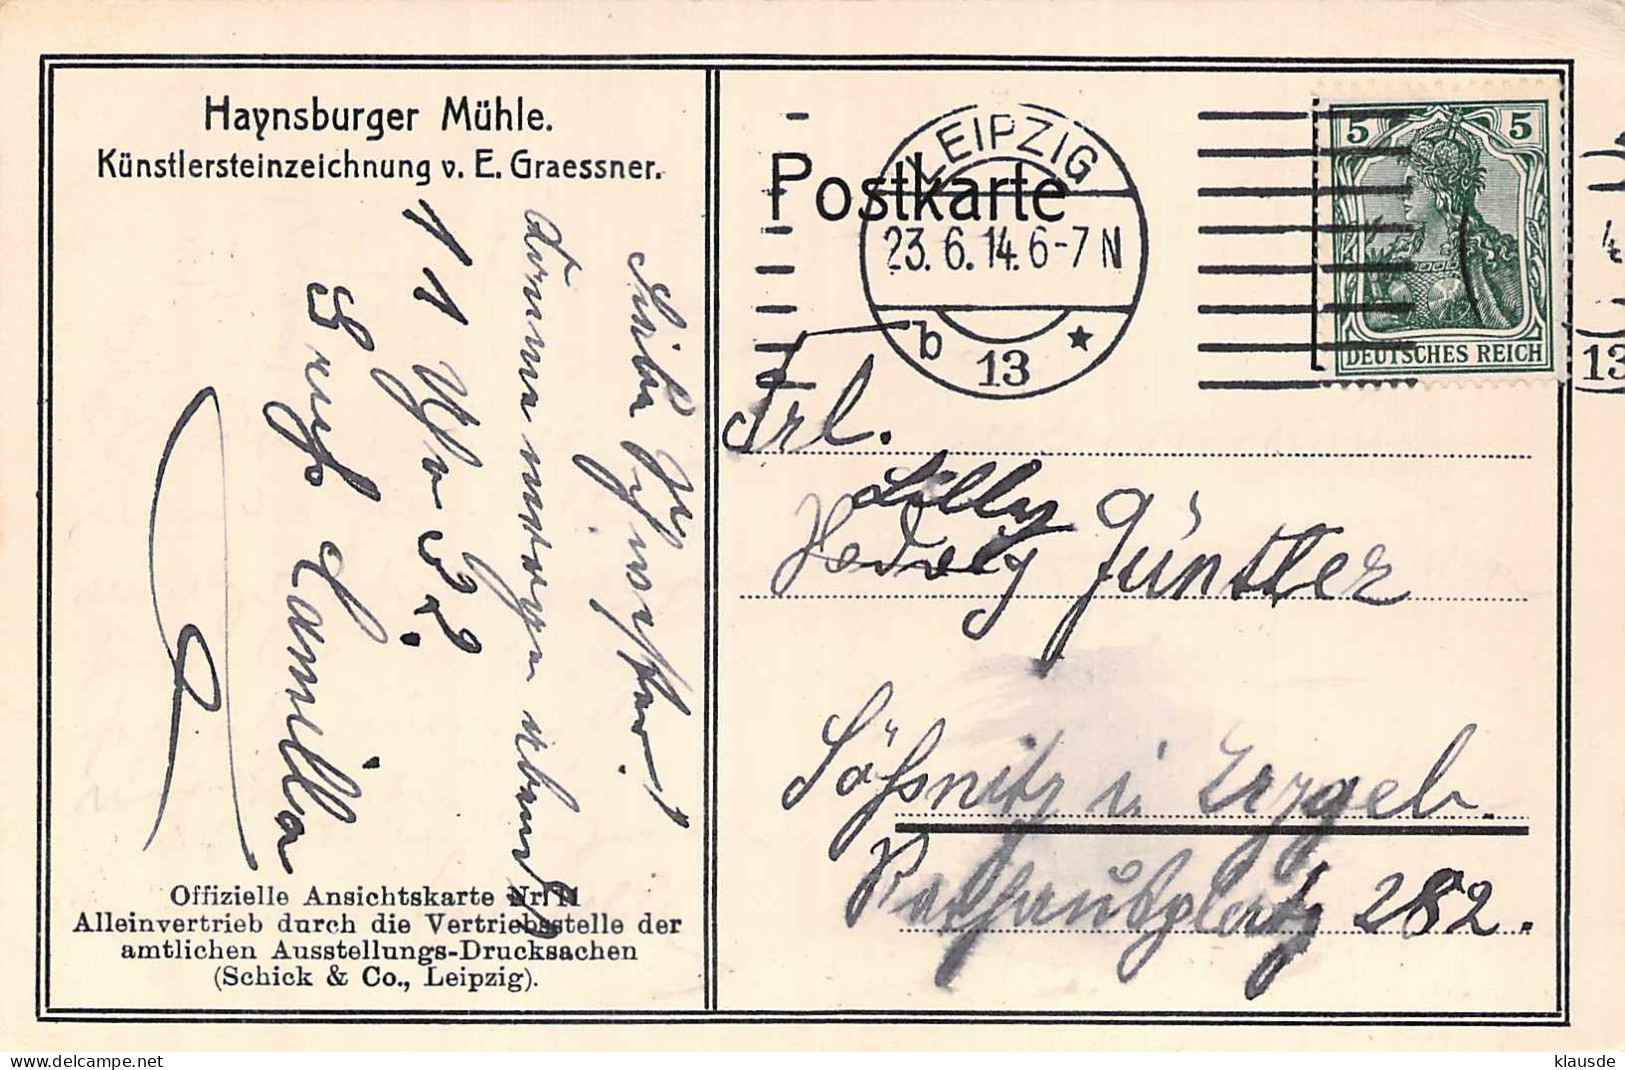 Haynsburger Mühle.
Künstlersteinzeichnung v. E. Graessner.
Liebe Schwester!
komme morgen abend
11 Uhr 32.
Gruß Camilla
Offizielle Ansichtskarte Nr. 11
Alleinvertrieb durch die Vertriebsstelle der
amtlichen Ausstellungs-Drucksachen
(Schick & Co., Leipzig).
Postkarte
LEIPZIG
23.6.14.6-7N
b 13 *
5 5
DEUTSCHES REICH
4
13
Frl.
Lilly
Hedwig Güntler
Lößnitz i. Erzgeb.
Rathausplatz 282.
www.delcampe.net
klausde